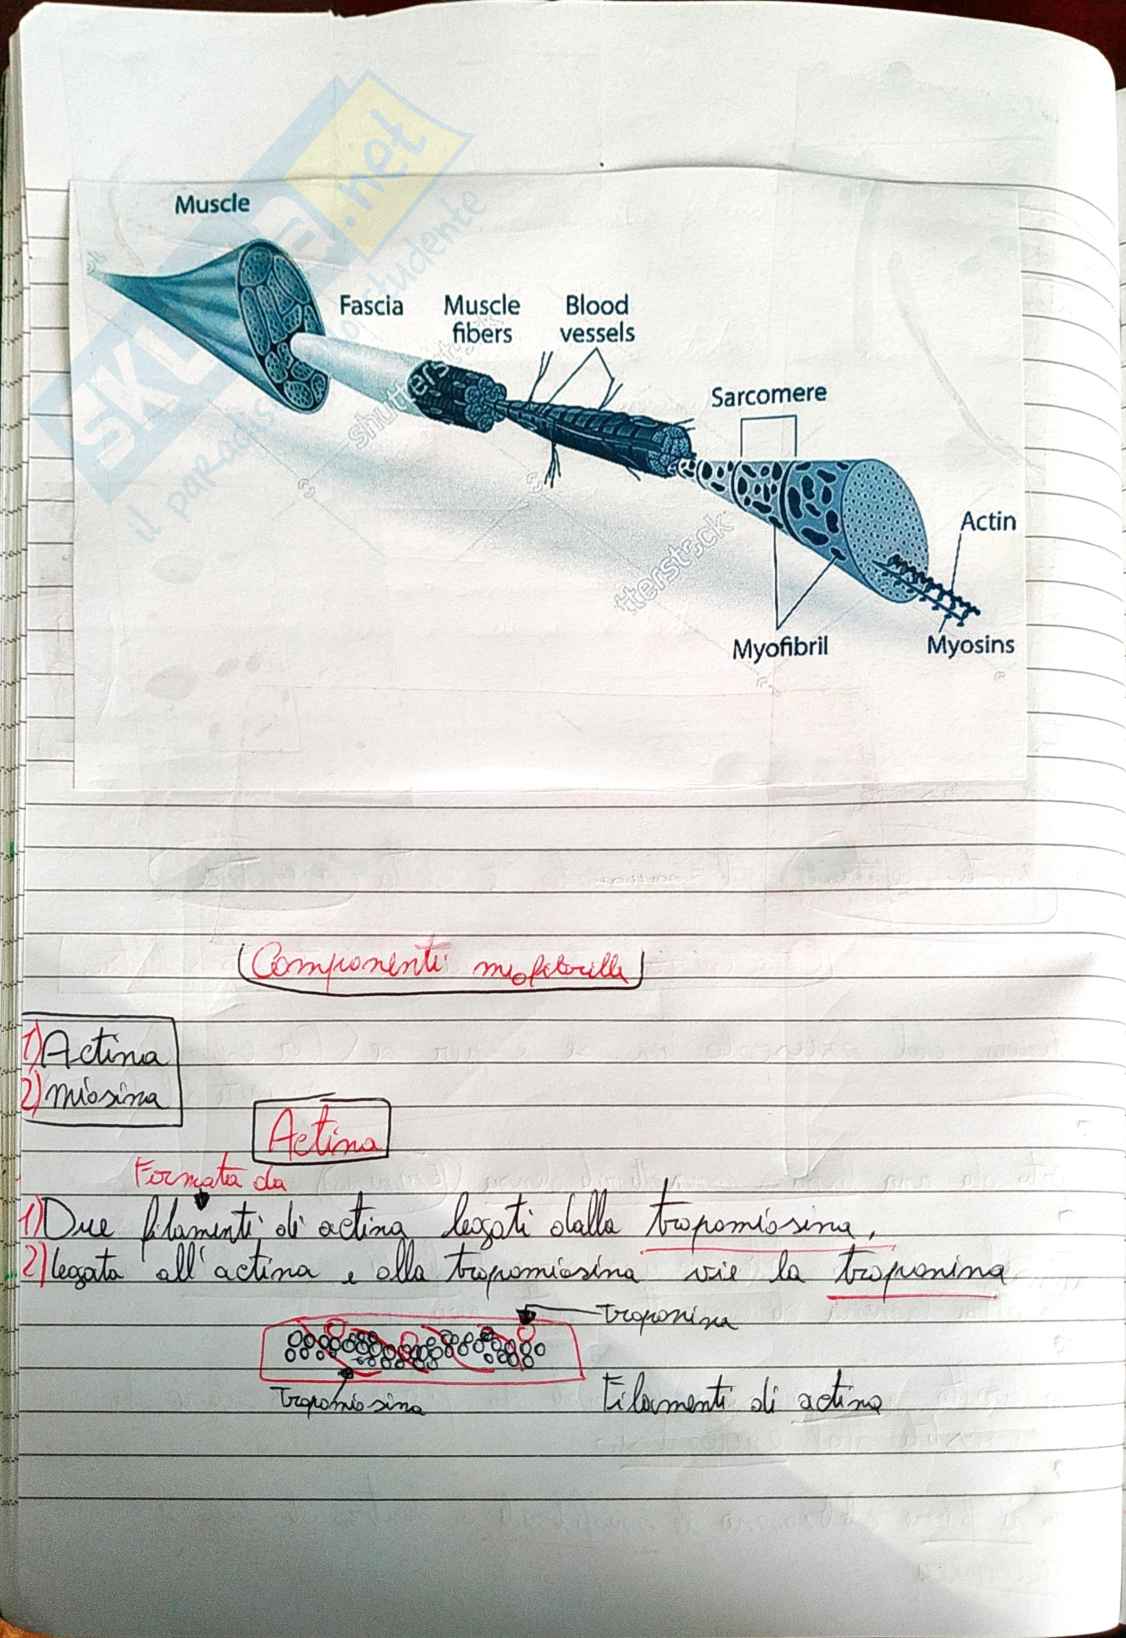 SKUOLA.net
il paradiso dello studente
Muscle
Fascia
Muscle fibers
Blood vessels
Sarcomere
shutterstock
tterstock
Actin
Myofibril
Myosins
Componenti miofibrille
1) Actina
2) miosina
Actina
Formata da
1) Due filamenti di actina legati dalla tropomiosina,
2) legata all'actina e alla tropomiosina vie la troponina
troponina
tropomiosina
Filamenti di actina